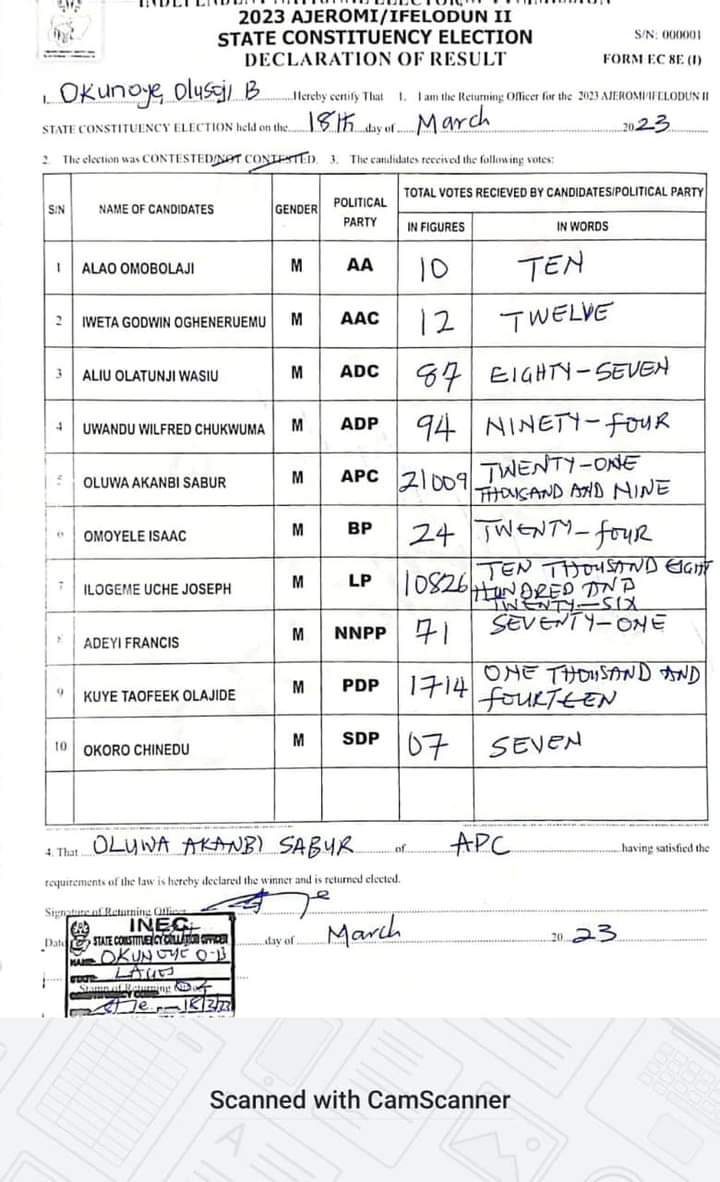 2023 AJEROMI/IFELODUN II
STATE CONSTITUENCY ELECTION
DECLARATION OF RESULT
S/N: 000001
FORM EC 8E (I)
I, Okunoye, Olusoji B Hereby certify That 1. I am the Returning Officer for the 2023 AJEROMI/IFELODUN II
STATE CONSTITUENCY ELECTION held on the 18th day of March 2023
2. The election was CONTESTED/NOT CONTESTED. 3. The candidates received the following votes:
S/N NAME OF CANDIDATES GENDER POLITICAL PARTY TOTAL VOTES RECIEVED BY CANDIDATES/POLITICAL PARTY
IN FIGURES IN WORDS
1 ALAO OMOBOLAJI M AA 10 TEN
2 IWETA GODWIN OGHENERUEMU M AAC 12 TWELVE
3 ALIU OLATUNJI WASIU M ADC 87 EIGHTY-SEVEN
4 UWANDU WILFRED CHUKWUMA M ADP 94 NINETY-FOUR
5 OLUWA AKANBI SABUR M APC 21009 TWENTY-ONE THOUSAND AND NINE
6 OMOYELE ISAAC M BP 24 TWENTY-FOUR
7 ILOGEME UCHE JOSEPH M LP 10826 TEN THOUSAND EIGHT HUNDRED AND TWENTY-SIX
8 ADEYI FRANCIS M NNPP 71 SEVENTY-ONE
9 KUYE TAOFEEK OLAJIDE M PDP 1714 ONE THOUSAND AND FOURTEEN
10 OKORO CHINEDU M SDP 07 SEVEN
4. That OLUWA AKANBI SABUR of APC having satisfied the
requirements of the law is hereby declared the winner and is returned elected.
Signature of Returning Officer
Date day of March 20 23
INEC
STATE CONSTITUENCY COLLATION OFFICER
NAME OKUNOYE O.B
STATE LAGOS
Stamp of Returning
18/3/23
Scanned with CamScanner